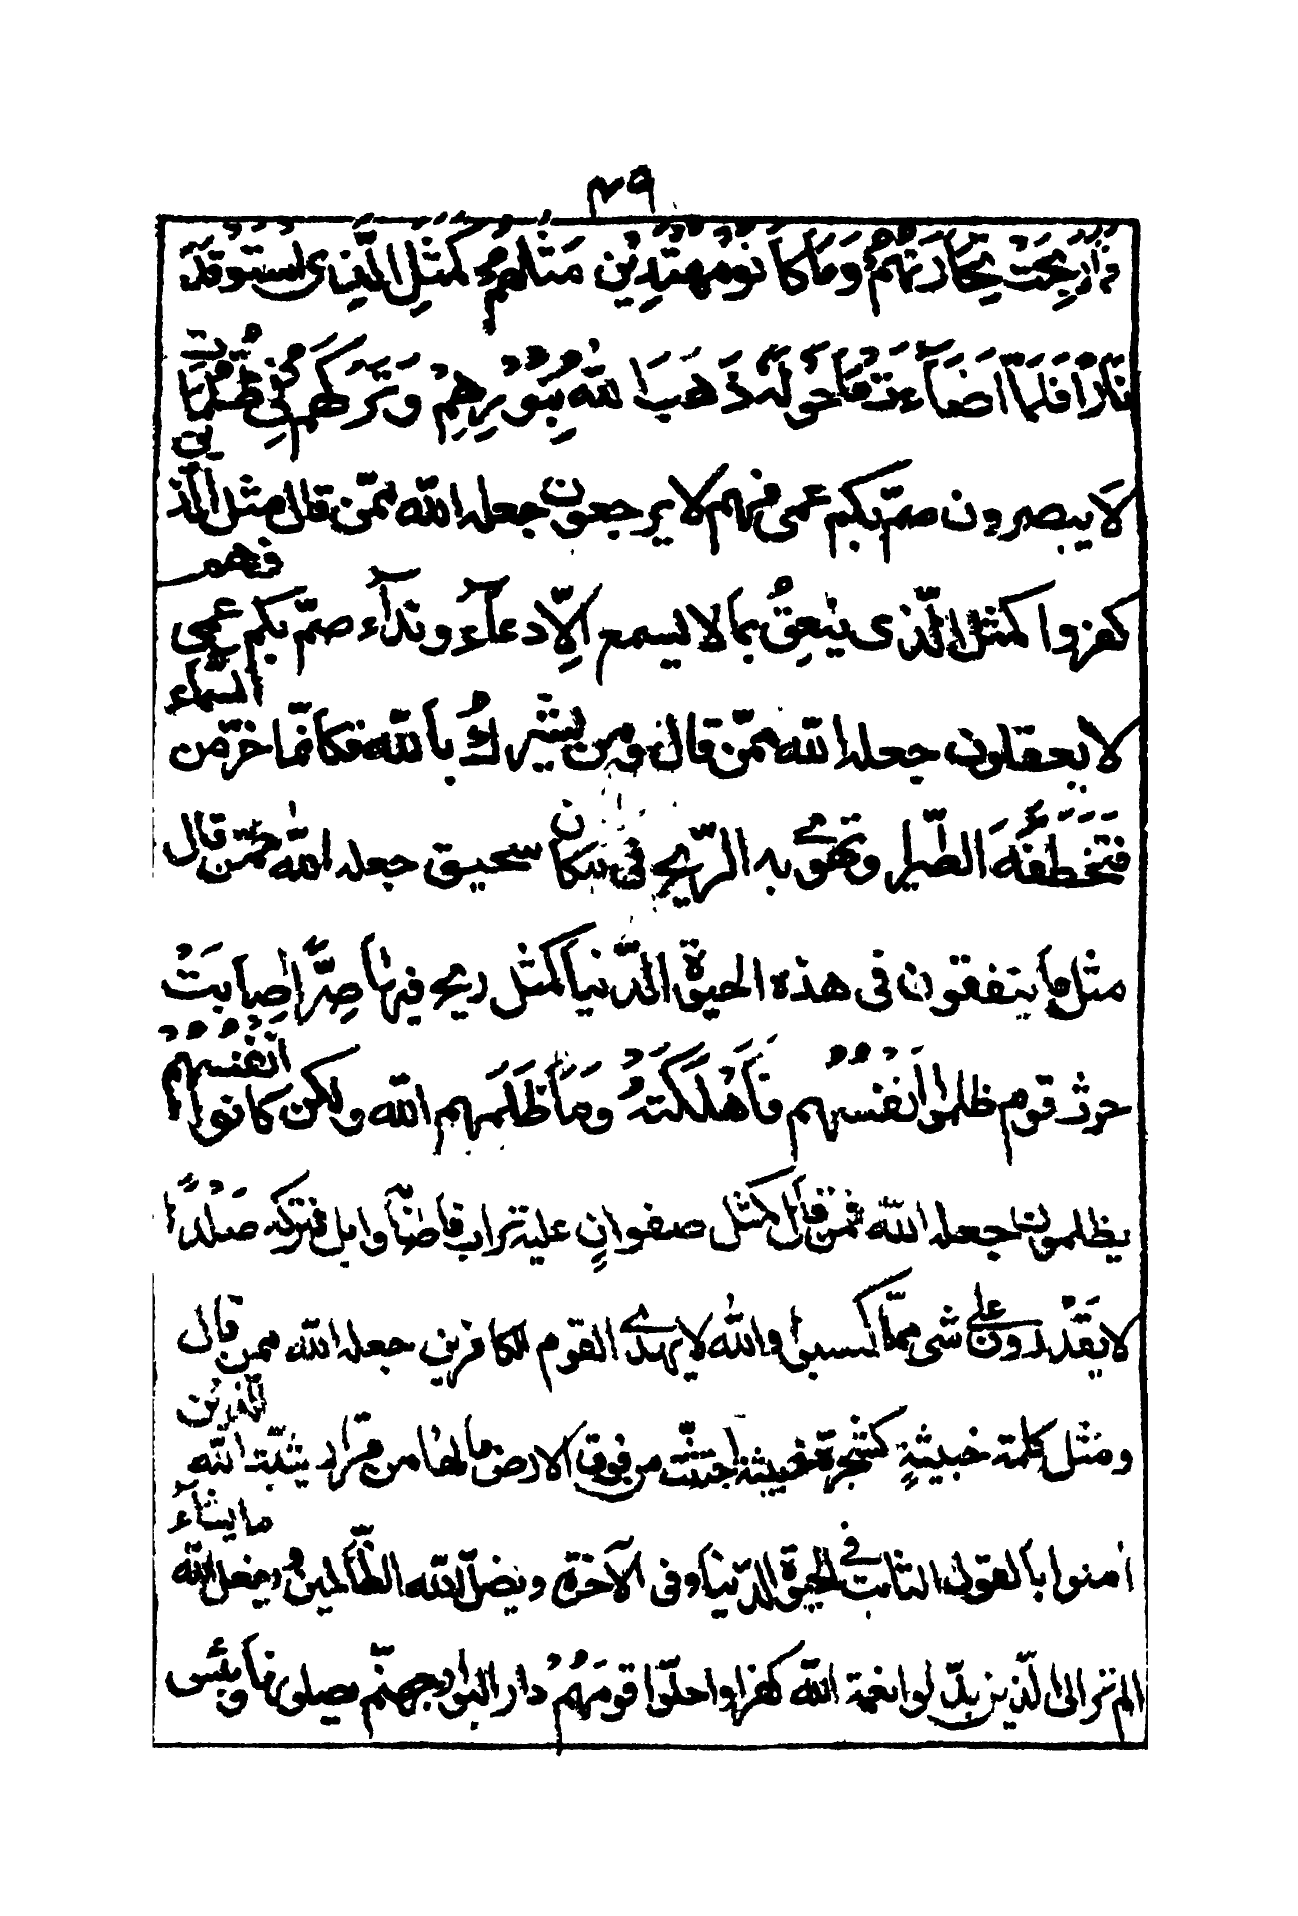 ٢٩
فما ربحت تجارتهم وما كانو مهتدين مثلهم كمثل الذى استوقد
نارا فلما اضاءت ما حوله ذهب الله بنورهم وتركهم فى ظلمات
لا يبصرون صمّ بكم عمى فهم لا يرجعون جعله الله ممّن قال مثل الّذين
كفروا كمثل الّذى ينعق بما لا يسمع الّا دعآء وندآء صمّ بكم عمى فهم
لا يعقلون جعله الله ممّن قال ومن يشرك بالله فكانّما خرّ من السّماء
فتخطفه الطّير او تهوى به الرّيح فى مكان سحيق جعله الله ممّن قال
مثل ما ينفقون فى هذه الحيوة الدّنيا كمثل ريح فيها صرّ اصابت
حرث قوم ظلموا انفسهم فاهلكته وما ظلمهم الله ولكن كانوا انفسهم
يظلمون جعله الله ممّن قال كمثل صفوان عليه تراب فاصابه وابل فتركه صلدا
لا يقدرون على شى ممّا كسبوا والله لا يهدى القوم الكافرين جعله الله ممن قال
ومثل كلمة خبيثة كشجرة خبيثة اجتثّت من فوق الارض ما لها من قرار يثبّت الله الّذين
امنوا بالقول الثابت فى الحيوة الدّنيا وفى الآخرة ويضلّ الله الظّالمين ويفعل الله ما يشآء
الم تر الى الّذين بدّلوا نعمة الله كفرا واحلّوا قومهم دار البوار جهنّم يصلونها وبئس